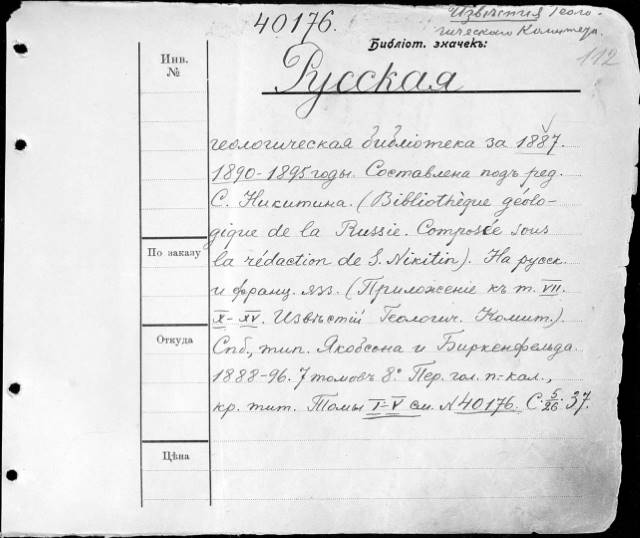 40176.
Извѣстия Геоло-
гического Комитета.
112
Библіот. значекъ:
Инв.
№
Русская
геологическая библіотека за 1887.
1890-1895 годы. Составлена подъ ред.
С. Никитина. (Bibliothèque géolo-
gique de la Russie. Composée sous
la rédaction de S. Nikitin). На русск.
По заказу
и франц. яз. (Приложеніе къ т. VII.
X-XV. Извѣстій Геологич. Комит.)
Откуда
Спб., тип. Якобсона и Биркенфельда.
1888-96. 7 томовъ 8°. Пер. гол. п.-кал.,
кр. тит. Томы I-V см. N 40176. С. 5/26. 37.
Цѣна